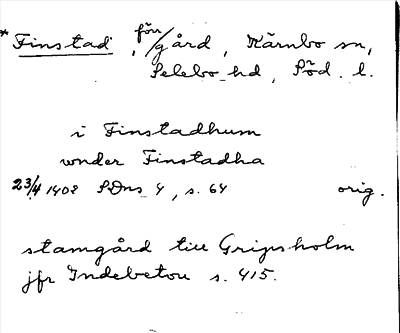 *Finstad, förr/gård, Kärnbo sn,
Selebo hd, Söd. l.
i Finstadhum
under Finstadha
23/4 1402 SDns 4, s. 64 orig.
stamgård till Gripsholm
jfr Indebetou s. 415.